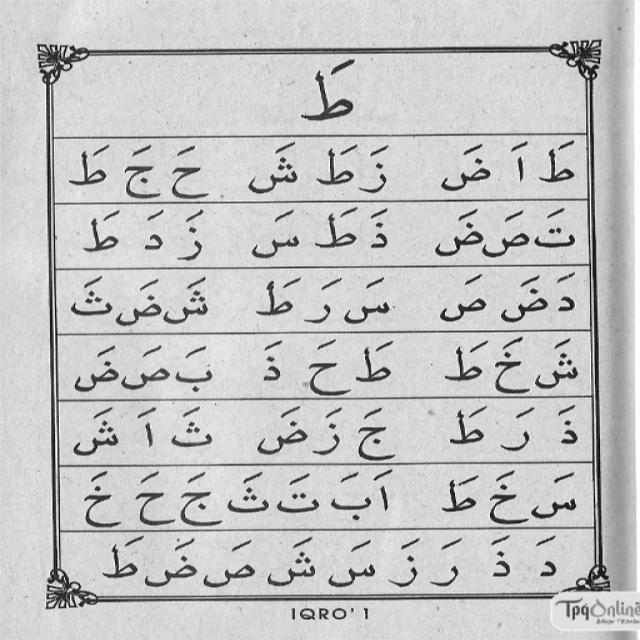 طَ
طَ اَ ضَ زَ طَ شَ حَ جَ طَ
تَ صَ ضَ ذَ طَ سَ زَ دَ طَ
دَ ضَ صَ سَ رَ طَ شَ ضَ ثَ
شَ خَ طَ طَ حَ ذَ بَ صَ ضَ
ذَ رَ طَ جَ زَ ضَ ثَ اَ شَ
سَ خَ طَ اَ بَ تَ ثَ جَ حَ خَ
دَ ذَ رَ زَ سَ شَ صَ ضَ طَ
IQRO' 1
TpqOnline